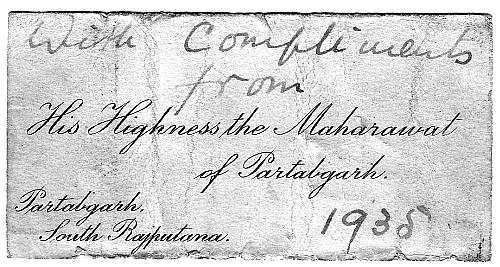 With Compliments
from
His Highness the Maharawat
of Partabgarh.
Partabgarh.
South Rajputana.
1935